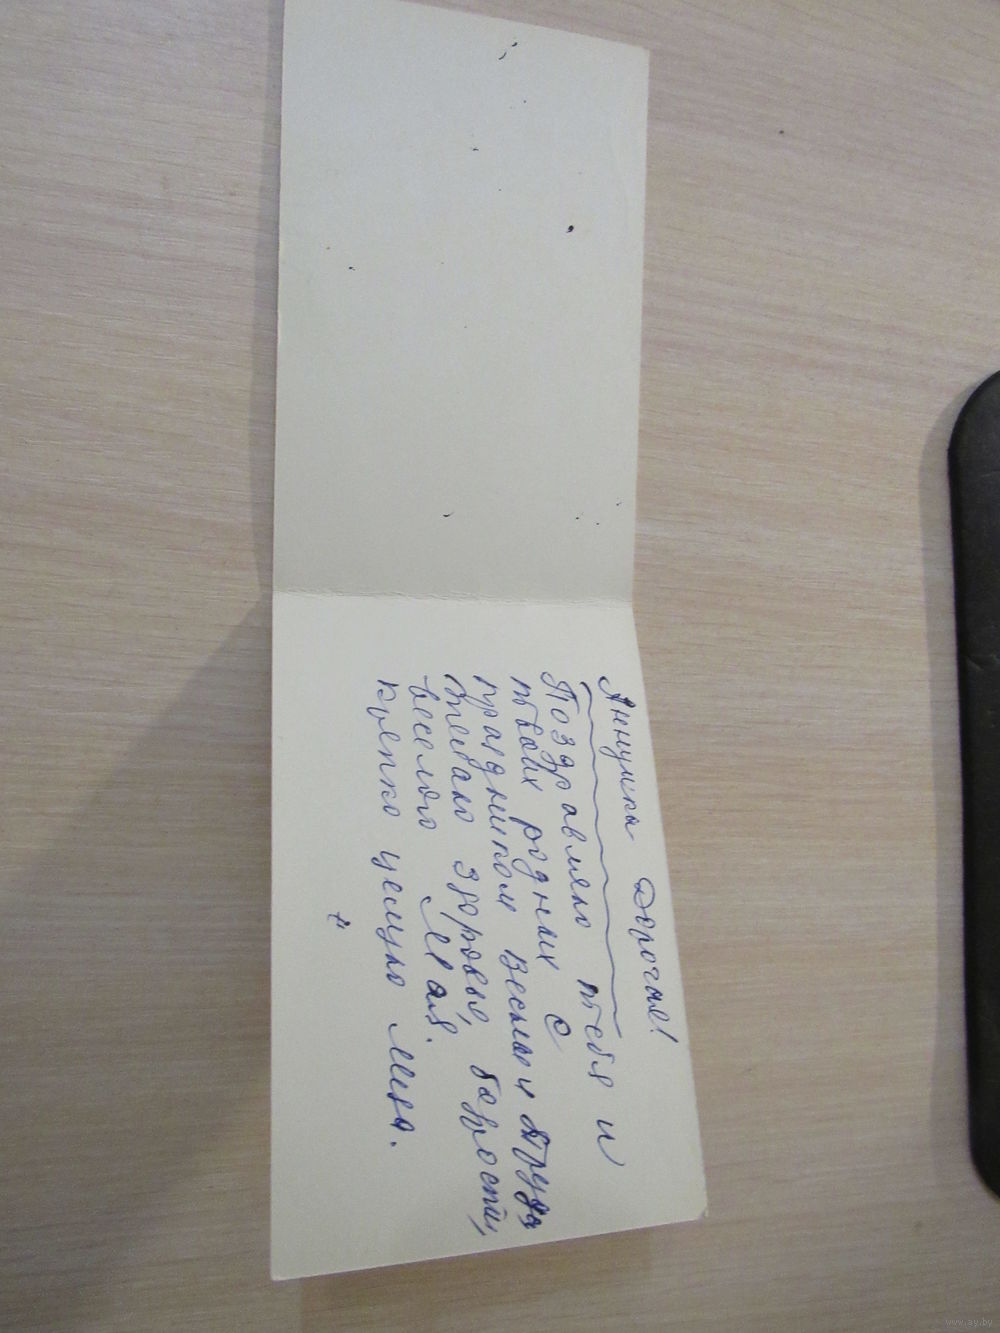 Аннушка дорогая!
Поздравляю тебя и
твоих родных с
праздником весны и труда
Желаю здоровья, бодрости,
веселого Мая.
Крепко целую
www.ay.by